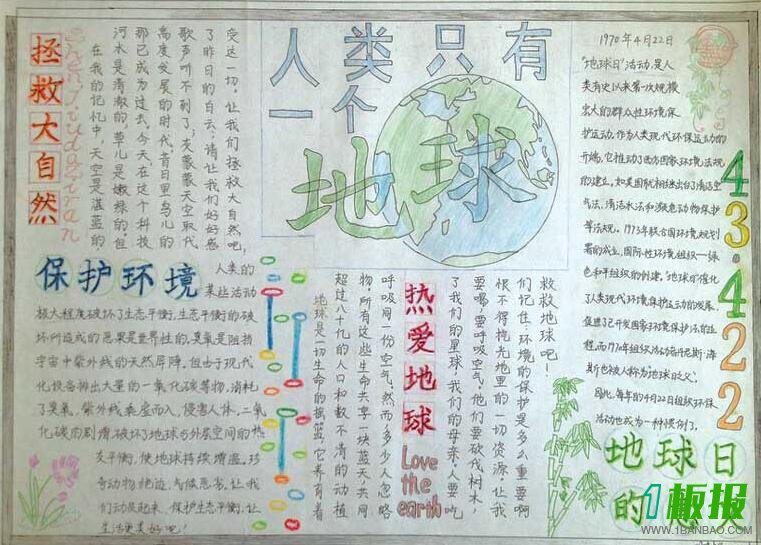 人类只有
一个
地球
拯救大自然
Zhengjiudaziran
在我的记忆中,天空是湛蓝的
河水是清澈的,草儿是嫩绿的,但
那已成为过去。今天,在这个科技
高度发展的时代,昔日里鸟儿的
歌声听不到了;灰蒙蒙天空取代
了昨日的白云;请让我们好好感
受这一切,让我们拯救大自然吧,
保护环境
人类的
某些活动
极大程度破坏了生态平衡,生态平衡的破
坏所造成的恶果是世界性的,臭氧是阻挡
宇宙中紫外线的天然屏障,但由于现代
化设备排出大量的一氧化碳等物,消耗
了臭氧,紫外线乘虚而入,侵害人体,二氧
化碳的剧增,破坏了地球与外层空间的热
灰平衡,使地球持续增温,珍
奇动物绝迹,气候恶劣,让我
们动员起来,保护生态平衡,让
生活更美好吧!
热爱地球
Love
the
earth
地球是一切生命的摇篮,它养育着
超过八十亿的人口和数不清的动植
物,所有这些生命共享一块蓝天,共同
呼吸同一份空气。然而,多少人忽略
了我们的星球,我们的母亲。人要吃
要喝,要呼吸空气,他们要砍伐树木,
恨不得挖光地里的一切资源,让我
们记住:环境的保护是多么重要啊
救救地球吧!
1970年4月22日
"地球日"活动,是人
类有史以来第一次规模
宏大的群众性环境保
护运动,作为人类现代环保运动的
开端,它推动了西方国家环境法规
的建立,如美国就相继出台了清洁空
气法,清洁水法和濒危动物保护
等法规,1973年联合国环境规划
署的成立,国际性环境组织—绿
色和平组织的创建,"地球日"催化
了人类现代环境保护运动的发展,
促进了已开发国家环境保护法的进
程,而1970年组织活动者丹尼斯·海
斯也被人称为"地球日之父"。
因此,每年的4月22日组织环保
活动也成为一种惯例了。
43·422
地球日
的
1板报
WWW.1BANBAO.COM